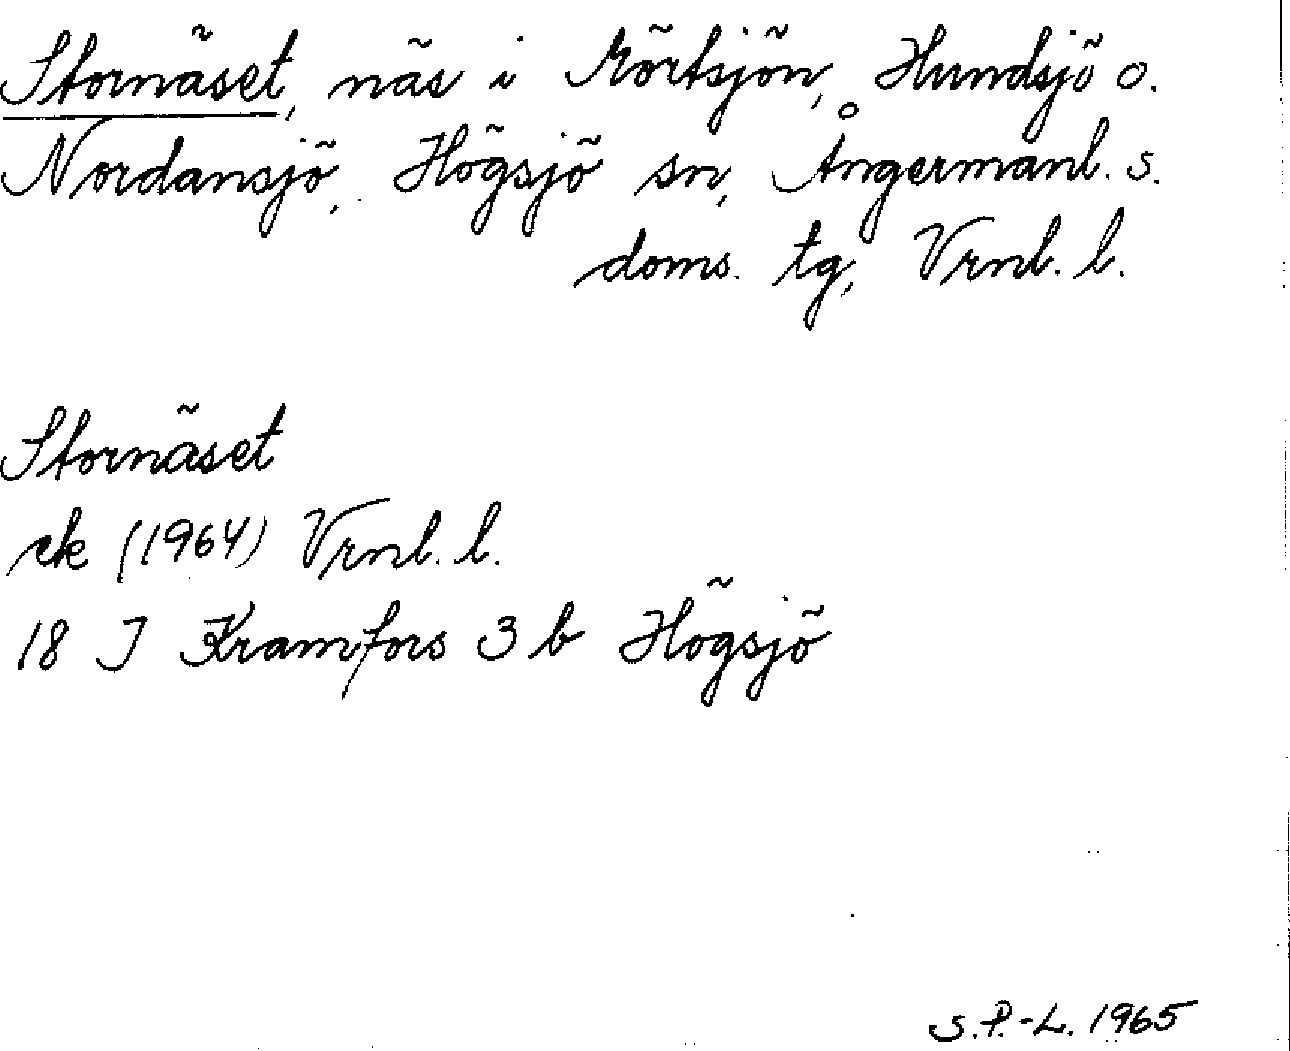 Stornäset, näs i Mörtsjön, Hundsjö o.
Nordansjö, Högsjö sn, Ångermanl. s.
doms. tg, Vrnl. l.
Stornäset
ek (1964) Vrnl. l.
18 J Kramfors 3 b Högsjö
S.P.-L. 1965